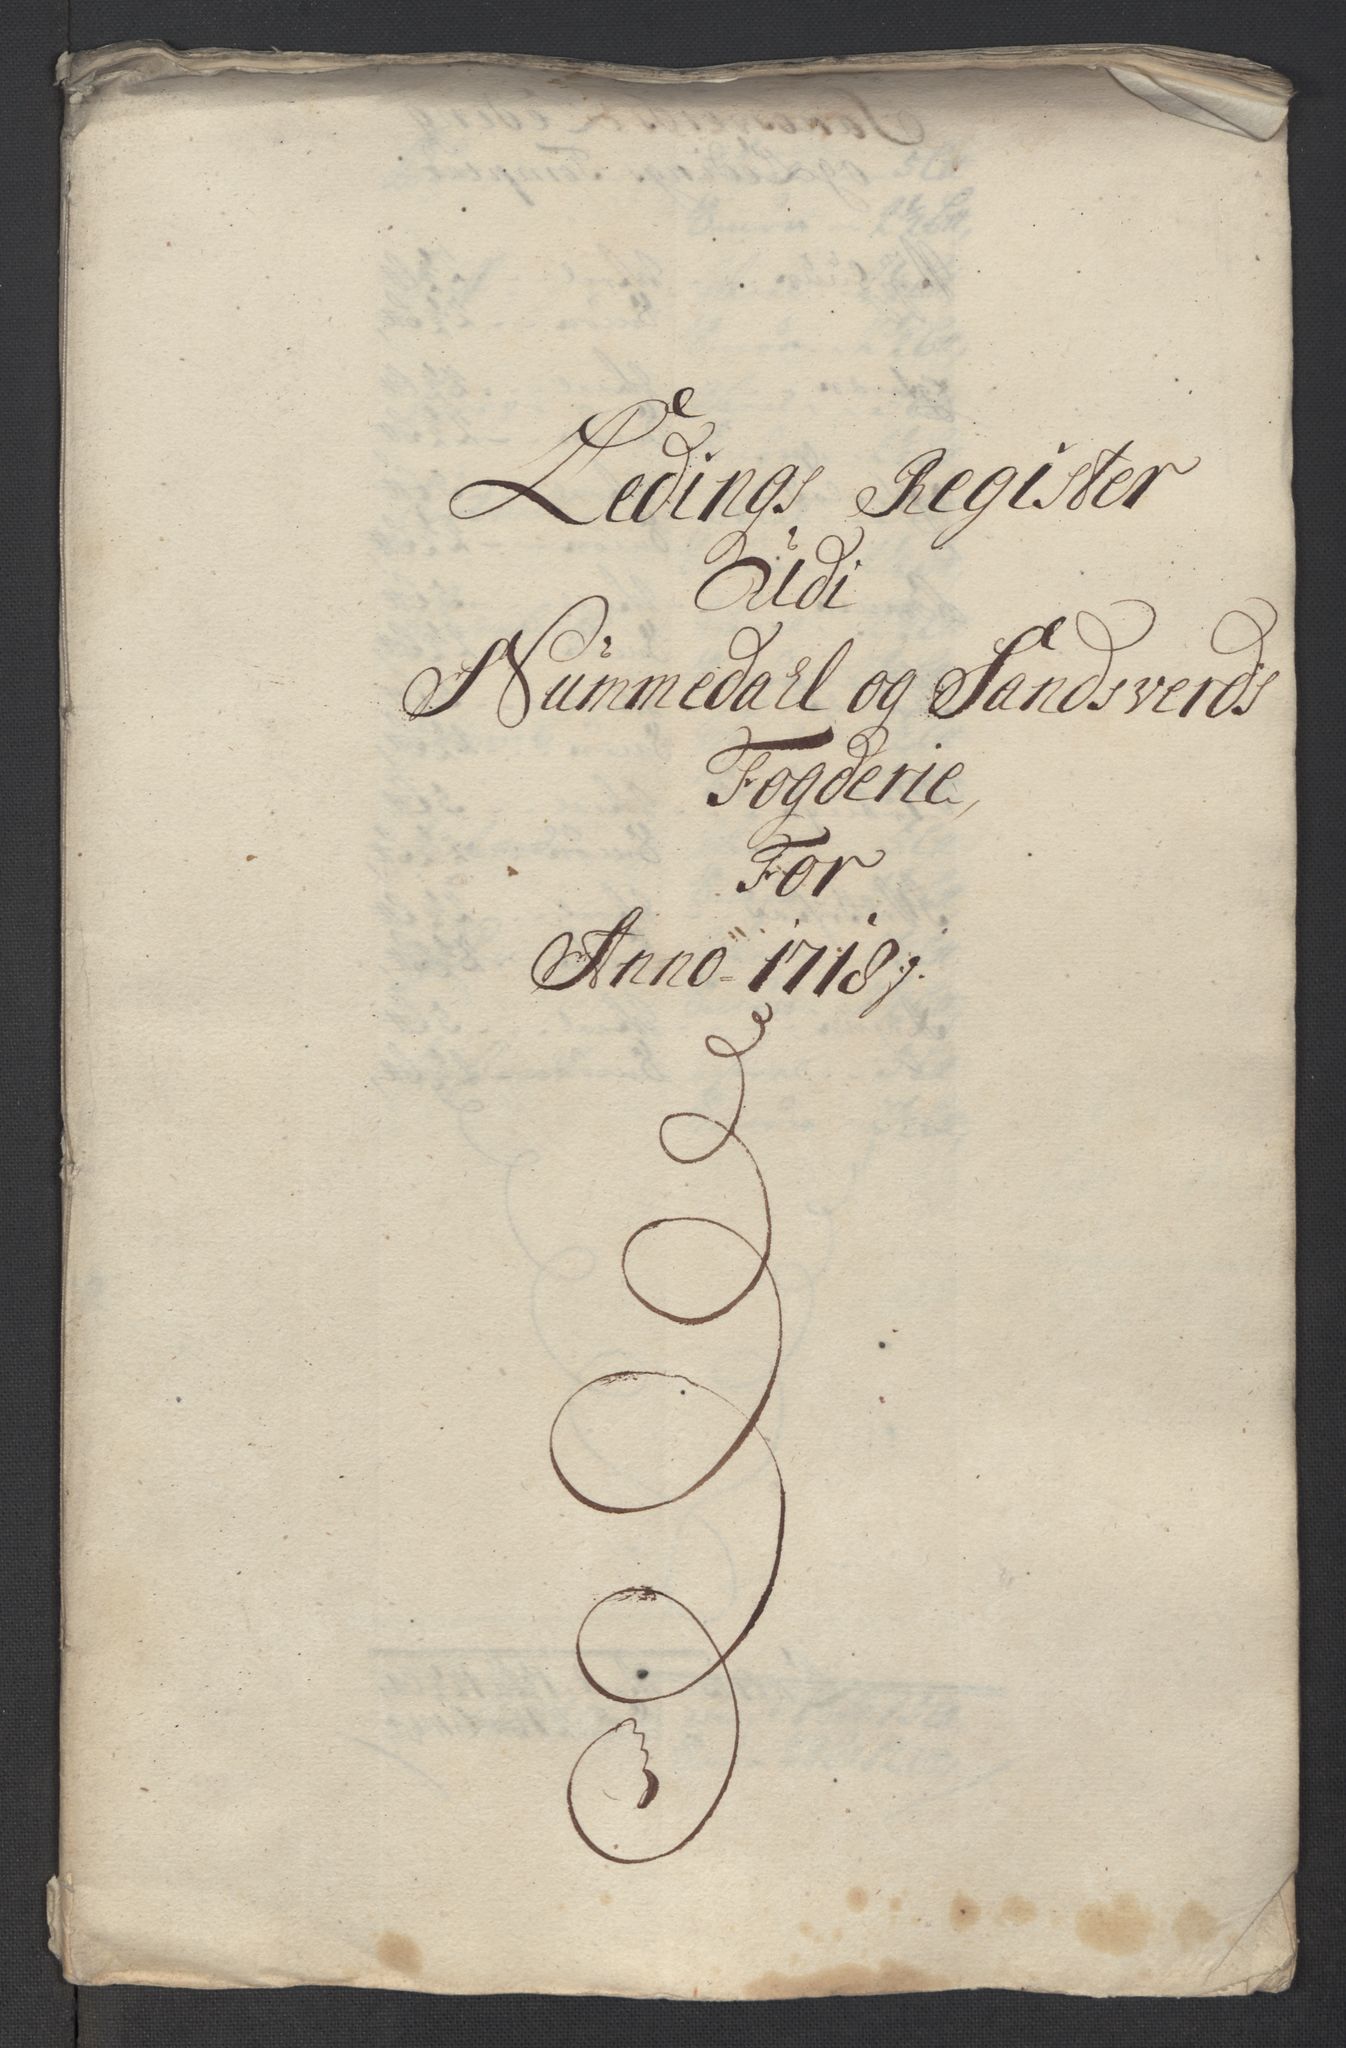 Ledings Register
Udi
Nummedahl og Sandsverds
Fogderie,
For
Anno 1718